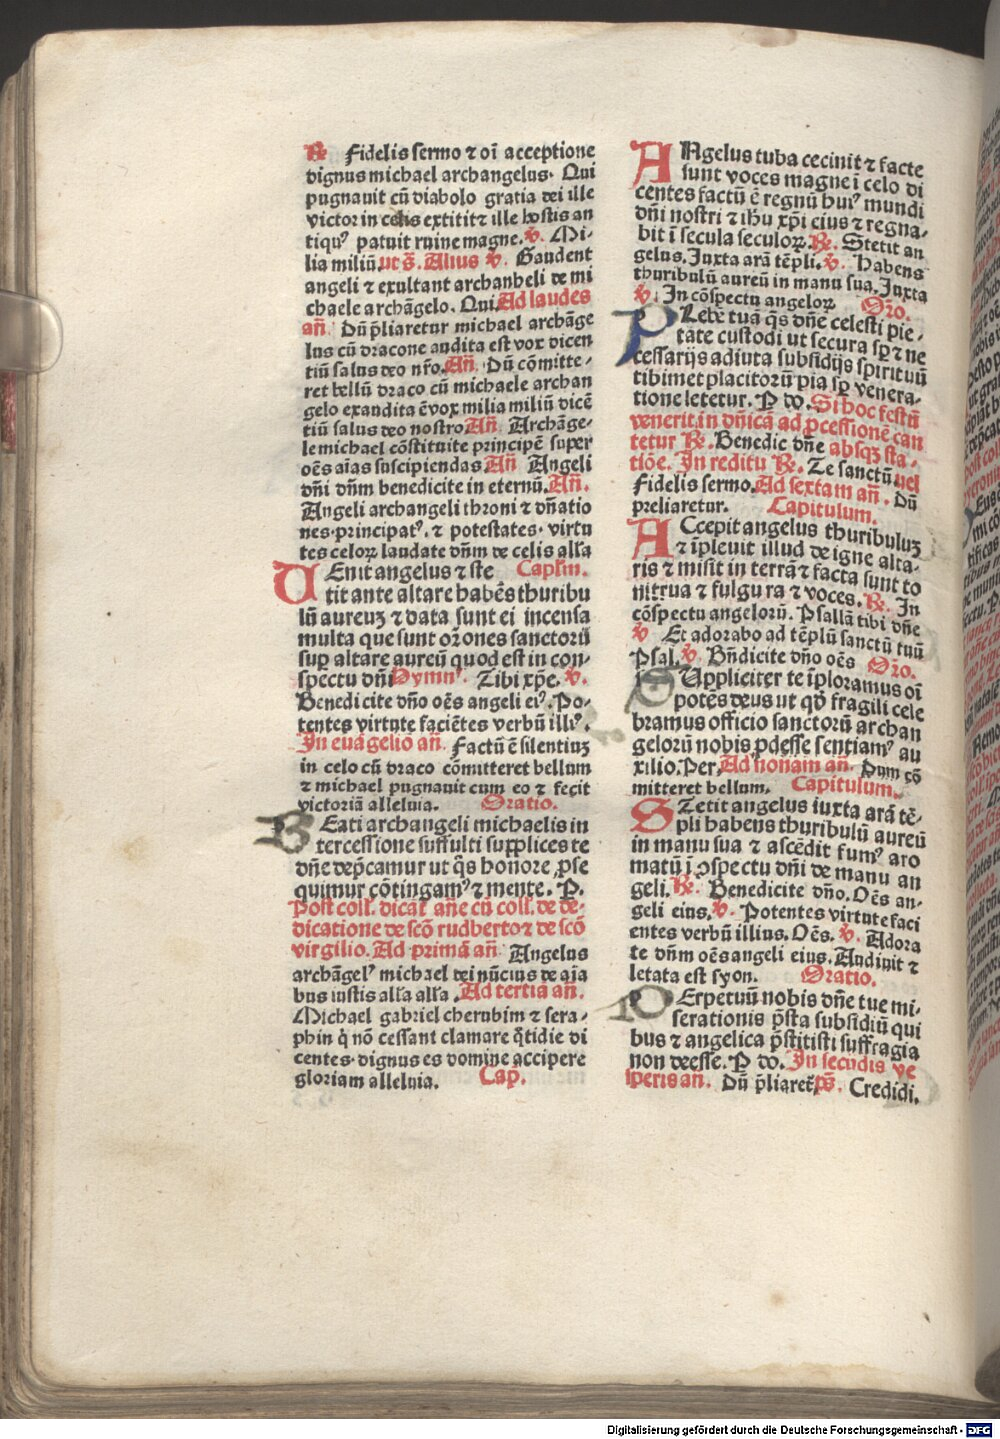 ℟ Fidelis sermo ⁊ oī acceptione
dignus michael archangelus. Qui
pugnauit cū diabolo gratia dei ille
victor in celis extitit ⁊ ille hostis an
tiquꝰ patuit ruine magne. ℣. Mi-
lia miliū. ut s̄. Alius ℣. Gaudent
angeli ⁊ exultant archanheli de mi
chaele archāgelo. Qui. Ad laudes
an̄. Dū p̄liaretur michael archāge
lus cū dracone audita est vox dicen
tiū salus deo nr̄o. An̄. Dū cōmitte-
ret bellū draco cū michaele archan
gelo exaudita ē vox milia miliū dicē
tiū salus deo nostro An̄. Archāge-
le michael cōstituite principē super
oēs aīas suscipiendas An̄ Angeli
dn̄i dn̄m benedicite in eternū. An̄.
Angeli archangeli throni ⁊ dn̄atio
nes. principatꝰ. ⁊ potestates. virtu
tes celoꝝ laudate dn̄m de celis all'a
VEnit angelus ⁊ ste Capl'm.
tit ante altare habēs thuribu
lū aureuꝫ ⁊ data sunt ei incensa
multa que sunt or̄ones sanctorū
sup̱ altare aureū quod est in con-
spectu dn̄i Hymnꝰ. Tibi xp̄e. ℣.
Benedicite dn̄o oēs angeli eiꝰ. Po-
tentes virtute faciētes verbū illiꝰ.
In euāgelio an̄. Factū ē silentiuꝫ
in celo cū draco cōmitteret bellum
⁊ michael pugnauit cum eo ⁊ fecit
victoriā alleluia. Oratio.
BEati archangeli michaelis in
tercessione suffulti supplices te
dn̄e dep̄camur ut q̄s honore ꝓse
quimur cōtingamꝰ ⁊ mente. P.
Post coll'. dicat' an̄e cū coll'. de de-
dicatione de sc̄o rudberto ⁊ de sc̄o
virgilio. Ad primā an̄ Angelus
archāgelꝰ michael dei nūcius de aīa
bus iustis all'a all'a. Ad tertiā an̄.
Michael gabriel cherubim ⁊ sera-
phin q̇ nō cessant clamare q̄tidie di
centes. dignus es domine accipere
gloriam alleluia. Cap.
ANgelus tuba cecinit ⁊ facte
sunt voces magne ī celo di
centes factū ē regnū huiꝰ mundi
dn̄i nostri ⁊ ihū xp̄i eius ⁊ regna-
bit ī secula seculoꝝ. ℟. Stetit an
gelus. Juxta arā tēpli. ℣. Habens
thuribulū aureū in manu sua. Juxta
℣. In cōspectu angeloꝝ Or̄o.
PLebē tuā q̄s dn̄e celesti pie-
tate custodi ut secura sp̱ ⁊ ne
cessarijs adiuta subsidijs spirituū
tibimet placitorū pia sp̱ venera-
tione letetur. P do. Si hoc festū
venerit in dn̄icā ad p̱cessionē can
tetur ℟. Benedic dn̄e absqꝫ sta-
tiōe. In reditu ℟. Te sanctū uel
Fidelis sermo. Ad sextam an̄. Dū
preliaretur. Capitulum.
ACcepit angelus thuribuluꝫ
⁊ īpleuit illud de igne alta-
ris ⁊ misit in terrā ⁊ facta sunt to
nitrua ⁊ fulgura ⁊ voces. ℟. In
cōspectu angelorū. Psallā tibi dn̄e
℣ Et adorabo ad tēplū sanctū tuū
Psal. ℣. Bn̄dicite dn̄o oēs Or̄o.
SUppliciter te īploramus oī
potēs deus ut qd̄ fragili cele
bramus officio sanctorū archan
gelorū nobis p̱desse sentiamꝰ au
xilio. Per. Ad nonam an̄. Dum cō
mitteret bellum. Capitulum.
STetit angelus iuxta arā tē-
pli habens thuribulū aureū
in manu sua ⁊ ascēdit fumꝰ aro
matū ī ꝯspectu dn̄i de manu an
geli. ℟. Benedicite dn̄o. Oēs an-
geli eius. ℣. Potentes virtute faci
entes verbū illius. Oēs. ℣. Adora
te dn̄m oēs angeli eius. Audiuit ⁊
letata est syon. Oratio.
PErpetuū nobis dn̄e tue mi-
serationis p̄sta subsidiū qui
bus ⁊ angelica p̄stitisti suffragia
non deesse. P do. In secūdis ve
speris an̄. Dū p̄liaret'. ps̄. Credidi.
Digitalisierung gefördert durch die Deutsche Forschungsgemeinschaft - DFG